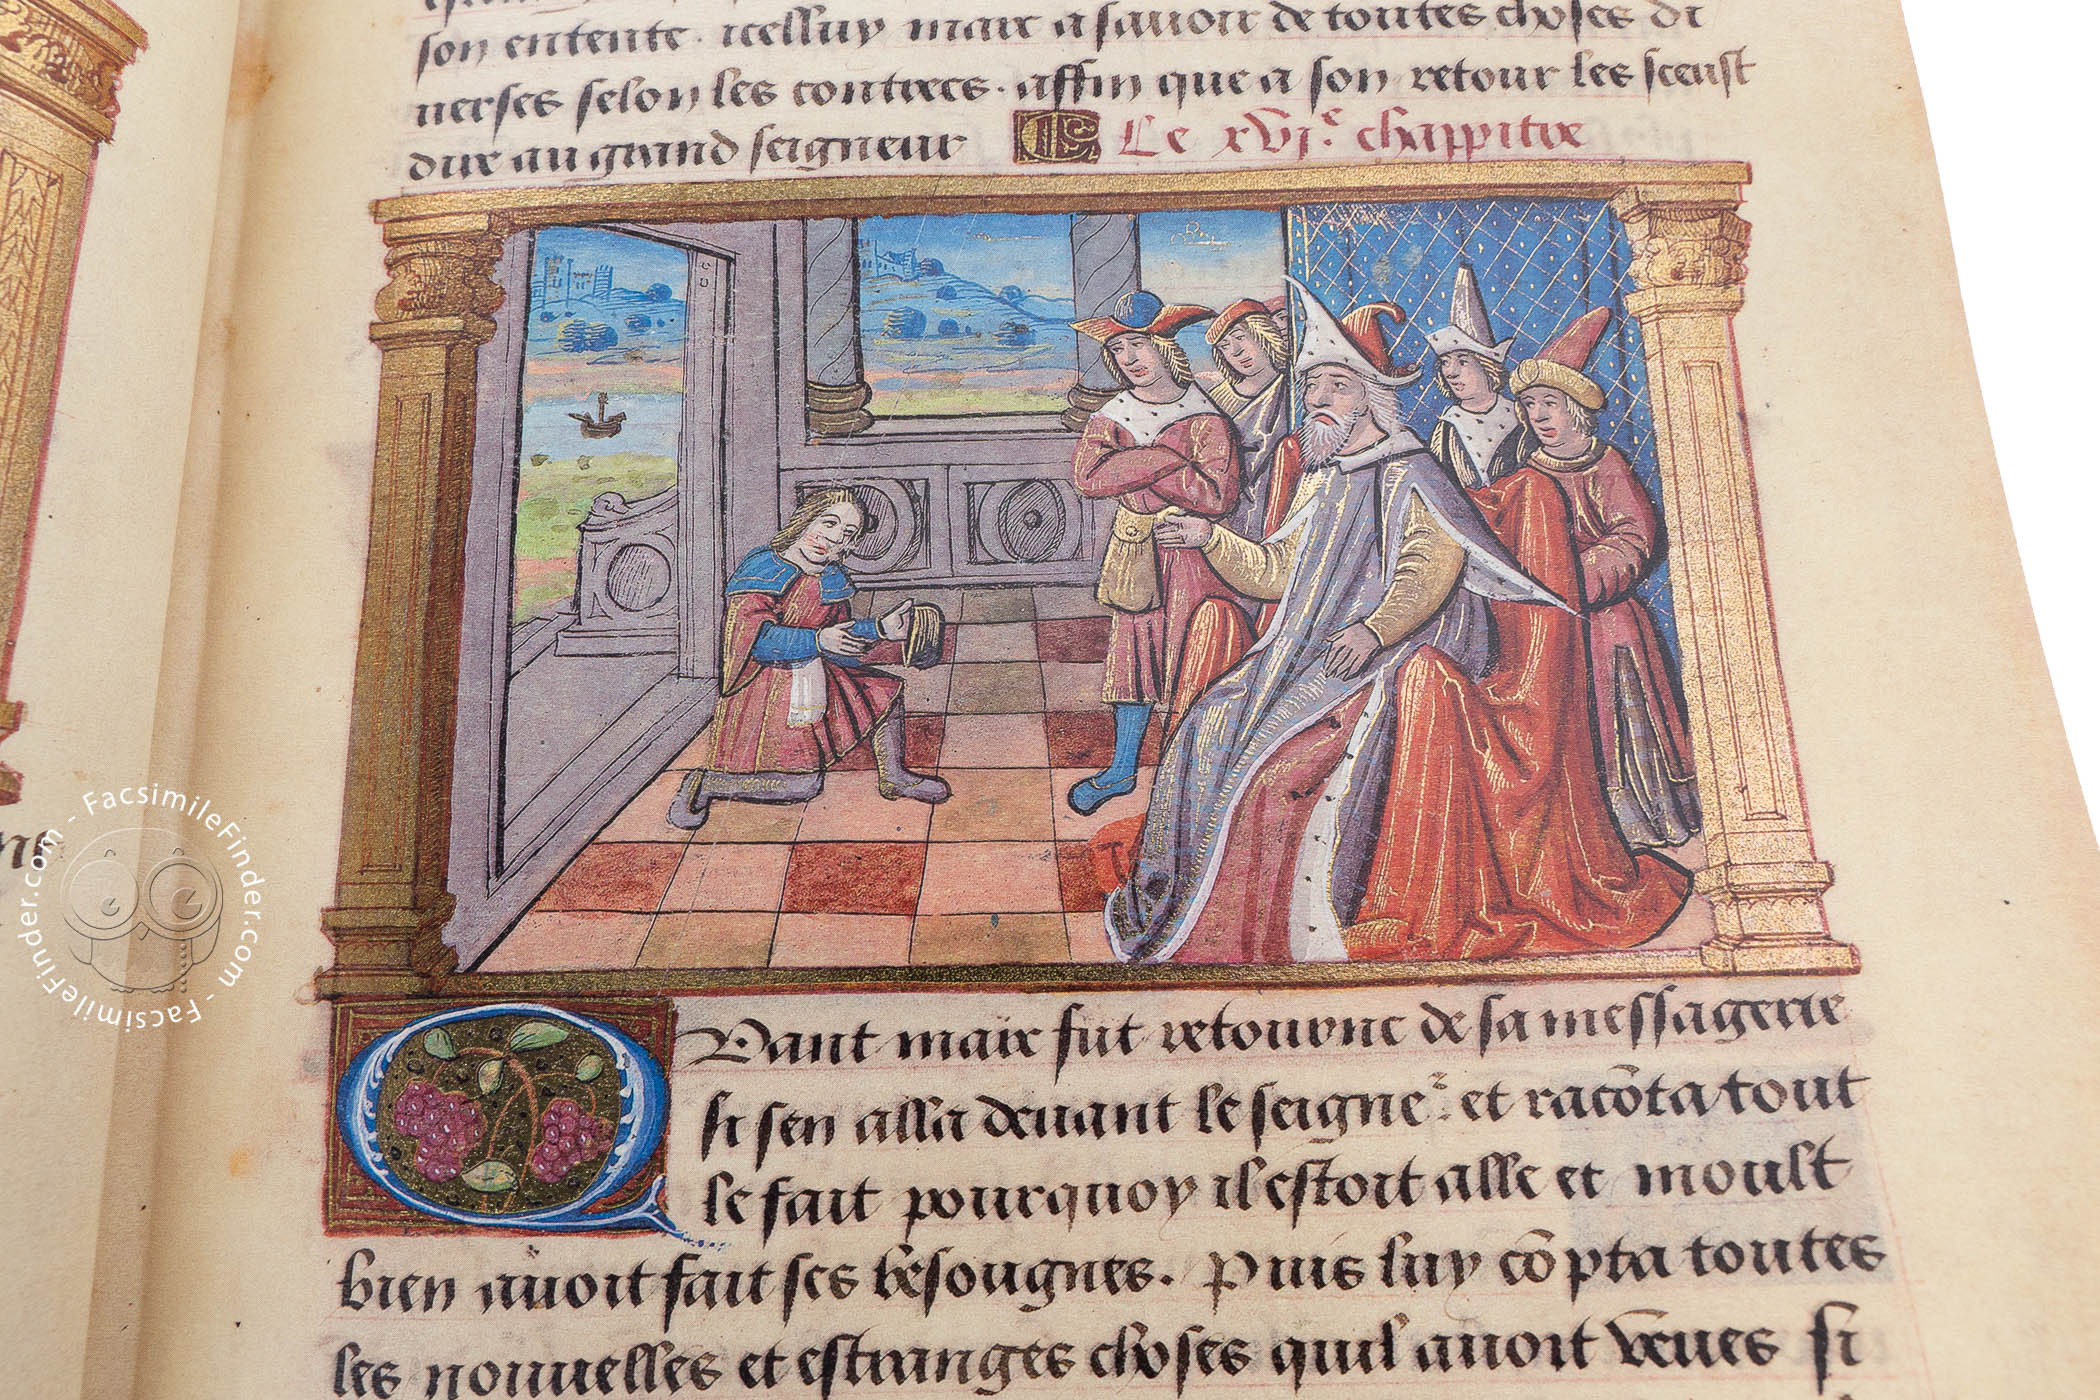 son entente. icelluy marc a sauoir de toutes choses di
uerses selon les contrees. affin que a son retour les sceust
dire au grand seigneur Le xvi.e chappitre
Quant marc fut retourne de sa messagerie
si sen alla deuant le seigne.r et racōta tout
le fait pourquoy il estoit alle et moult
bien auoit fait ses besougnes. Puis luy cōpta toutes
les nouuelles et estranges choses quil auoit veues si
FacsimileFinder.com - FacsimileFinder.com -